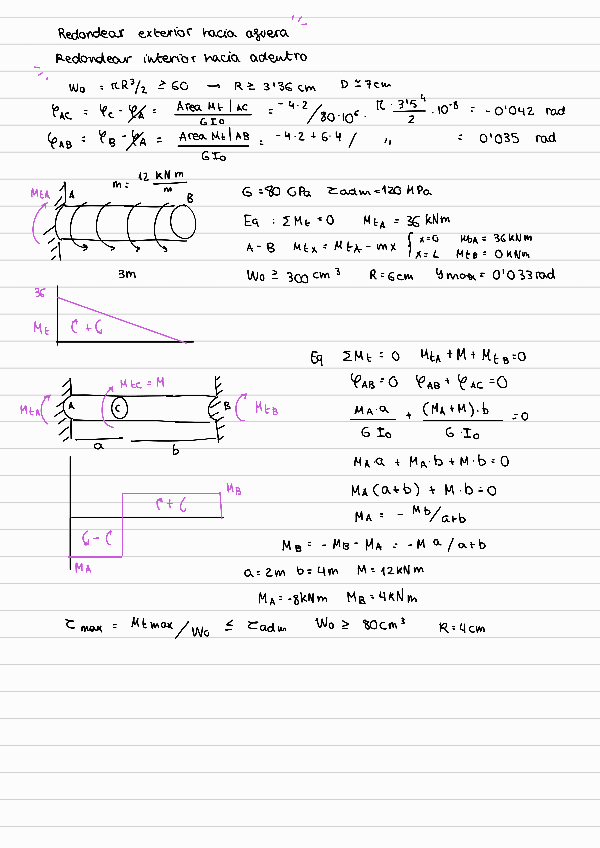 Redondear exterior hacia afuera
Redondear interior hacia adentro
W₀ = πR³/₂ ≥ 60 → R ≥ 3'36 cm D ≃ 7cm
φAC = φC - φA = Area Mt | AC / G I₀ = -4·2 / 80·10⁶ · π·3'5⁴/2 · 10⁻⁸ = -0'042 rad
φAB = φB - φA = Area Mt | AB / G I₀ = -4·2 + 6·4 / " = 0'035 rad
m = 12 kNm/m
MtA A B
G = 80 GPa τadm = 120 MPa
Eq : ΣMt = 0 MtA = 36 kNm
A - B Mtx = MtA - mx { x=0 MtA = 36kNm
x=L MtB = 0kNm
3m
W₀ ≥ 300 cm³ R = 6cm γmax = 0'033 rad
36
Mt
+
Eq ΣMt = 0 MtA + M + MtB = 0
MtC = M
φAB = 0 φAB + φAC = 0
MtA A C B MtB
a b
MA·a / G I₀ + (MA+M)·b / G·I₀ = 0
MA·a + MA·b + M·b = 0
MB
+
MA(a+b) + M·b = 0
MA = - Mb/a+b
-
MB = -MB - MA = -M a/a+b
MA
a = 2m b = 4m M = 12kNm
MA = -8kNm MB = 4kNm
τmax = Mtmax/W₀ ≤ τadm W₀ ≥ 80cm³ R = 4cm